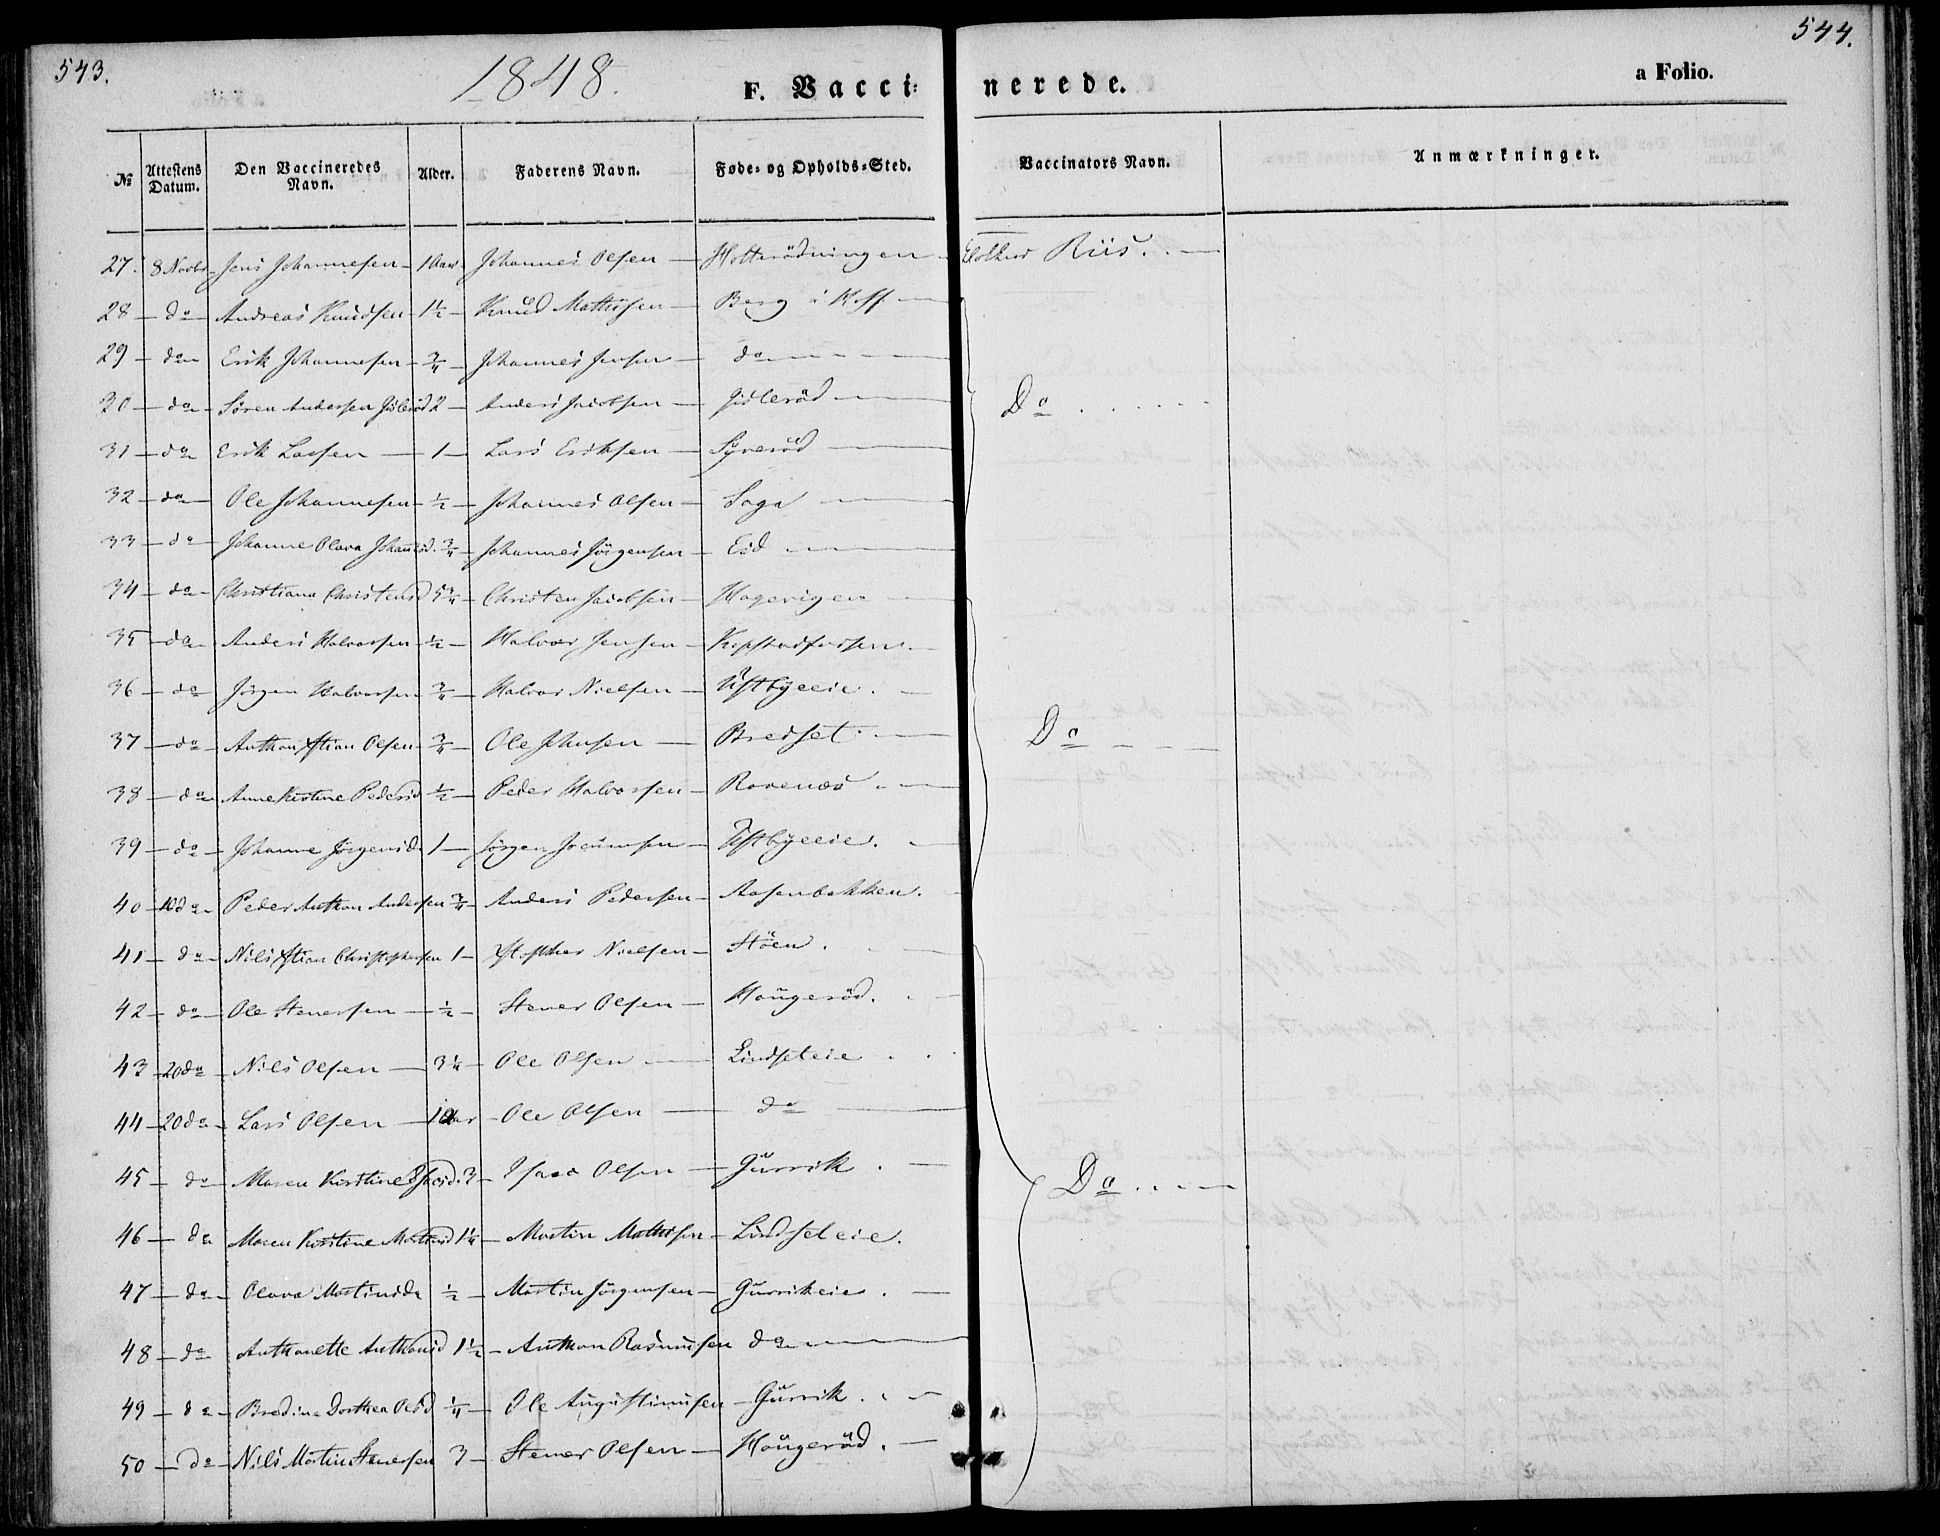 543.
544.
1848.
F. Vacci-
nerede.
a Folio.
№ Attestens Datum. Den Vaccineredes Navn. Alder. Faderens Navn. Føde- og Opholds-Sted. Vaccinators Navn. Anmærkninger.
27. 8 Novbr Jens Johannesen 1 Aar Johannes Olsen Holtrödningen Riis
28 do Andreas Knudsen 1½ Knud Mathisen Berg i
29 do Erik Johannesen ¾ Johannes Jensen do
30 do Sören Andersen 2 Anders Jacobsen Gisleröd Do
31 do Erik Larsen 1 Lars Eriksen Syveröd
32 do Ole Johannesen ½ Johannes Olsen Saga
33 do Johanne Olava ¾ Johannes Jörgensen Eid
34 do Christiana Christensd 5¾ Christen Jacobsen Hagevigen
35 do Anders Halvorsen ½ Halvor Jensen Kopstadfossen
36 do Jörgen Halvorsen ¾ Halvor Nielsen
37 do Anthon Xstian Olsen ¾ Ole Johnsen Bredset Do
38 do Anne Kirstine Pedersd ½ Peder Halvorsen Ravenæs
39 do Johanne Jörgensd. 1 Jörgen
40 10 do Peder Anthon Andersen ¾ Anders Pedersen Aasenbakken.
41 do Nils Xstian Christophersen 1 Xstopher Nielsen Stöen.
42 do Ole Stenersen ½ Stener Olsen Haugeröd.
43 20 do Nils Olsen 3¼ Ole Olsen Lindseteie
44 20 do Lars Olsen Aar Ole Olsen do
45 do Maren Kirstine 3 Isaac Olsen Gurrik Do
46 do Maren Kirstine 1¼ Martin Mathisen Lindseteie.
47 do Olava Martinsd. ½ Martin Jörgensen Gurrikeie.
48 do Anthonette Anthonsd 1½ Anthon Rasmusen do
49 do Bredine Dorthea Olsd ¼ Ole Augustinusen Gurrik.
50 do Nils Martin Stenersen 3 Stener Olsen Haugeröd.